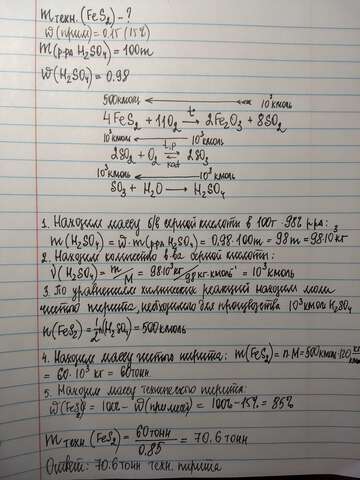 m техн. (FeS₂) - ?
ω(прим) = 0.15 (15%)
m(р-ра H₂SO₄) = 100т
ω(H₂SO₄) = 0.98
500кмоль ← 10³кмоль
4FeS₂ + 11O₂ →t 2Fe₂O₃ + 8SO₂
10³кмоль ← 10³кмоль
2SO₂ + O₂ ⇄ t,p kat 2SO₃
10³кмоль ← 10³кмоль
SO₃ + H₂O → H₂SO₄
1. Находим массу б/в серной кислоты в 100т 98% р-ра:
m(H₂SO₄) = ω · m(р-ра H₂SO₄) = 0.98 · 100т = 98т = 98·10³кг
2. Находим количество в-ва серной кислоты:
ν(H₂SO₄) = m/M = 98·10³кг / 98кг·кмоль⁻¹ = 10³кмоль
3. По уравнениям химических реакций находим моли
чистого пирита, необходимого для производства 10³кмоль H₂SO₄
n(FeS₂) = 1/2 n(H₂SO₄) = 500кмоль
4. Находим массу чистого пирита: m(FeS₂) = n·M = 500кмоль·120 кг/кмоль
= 60·10³ кг = 60тонн.
5. Находим массу технического пирита:
ω(FeS₂) = 100% - ω(примесей) = 100% - 15% = 85%
m техн. (FeS₂) = 60тонн / 0.85 = 70.6 тонн
Ответ: 70.6 тонн техн. пирита